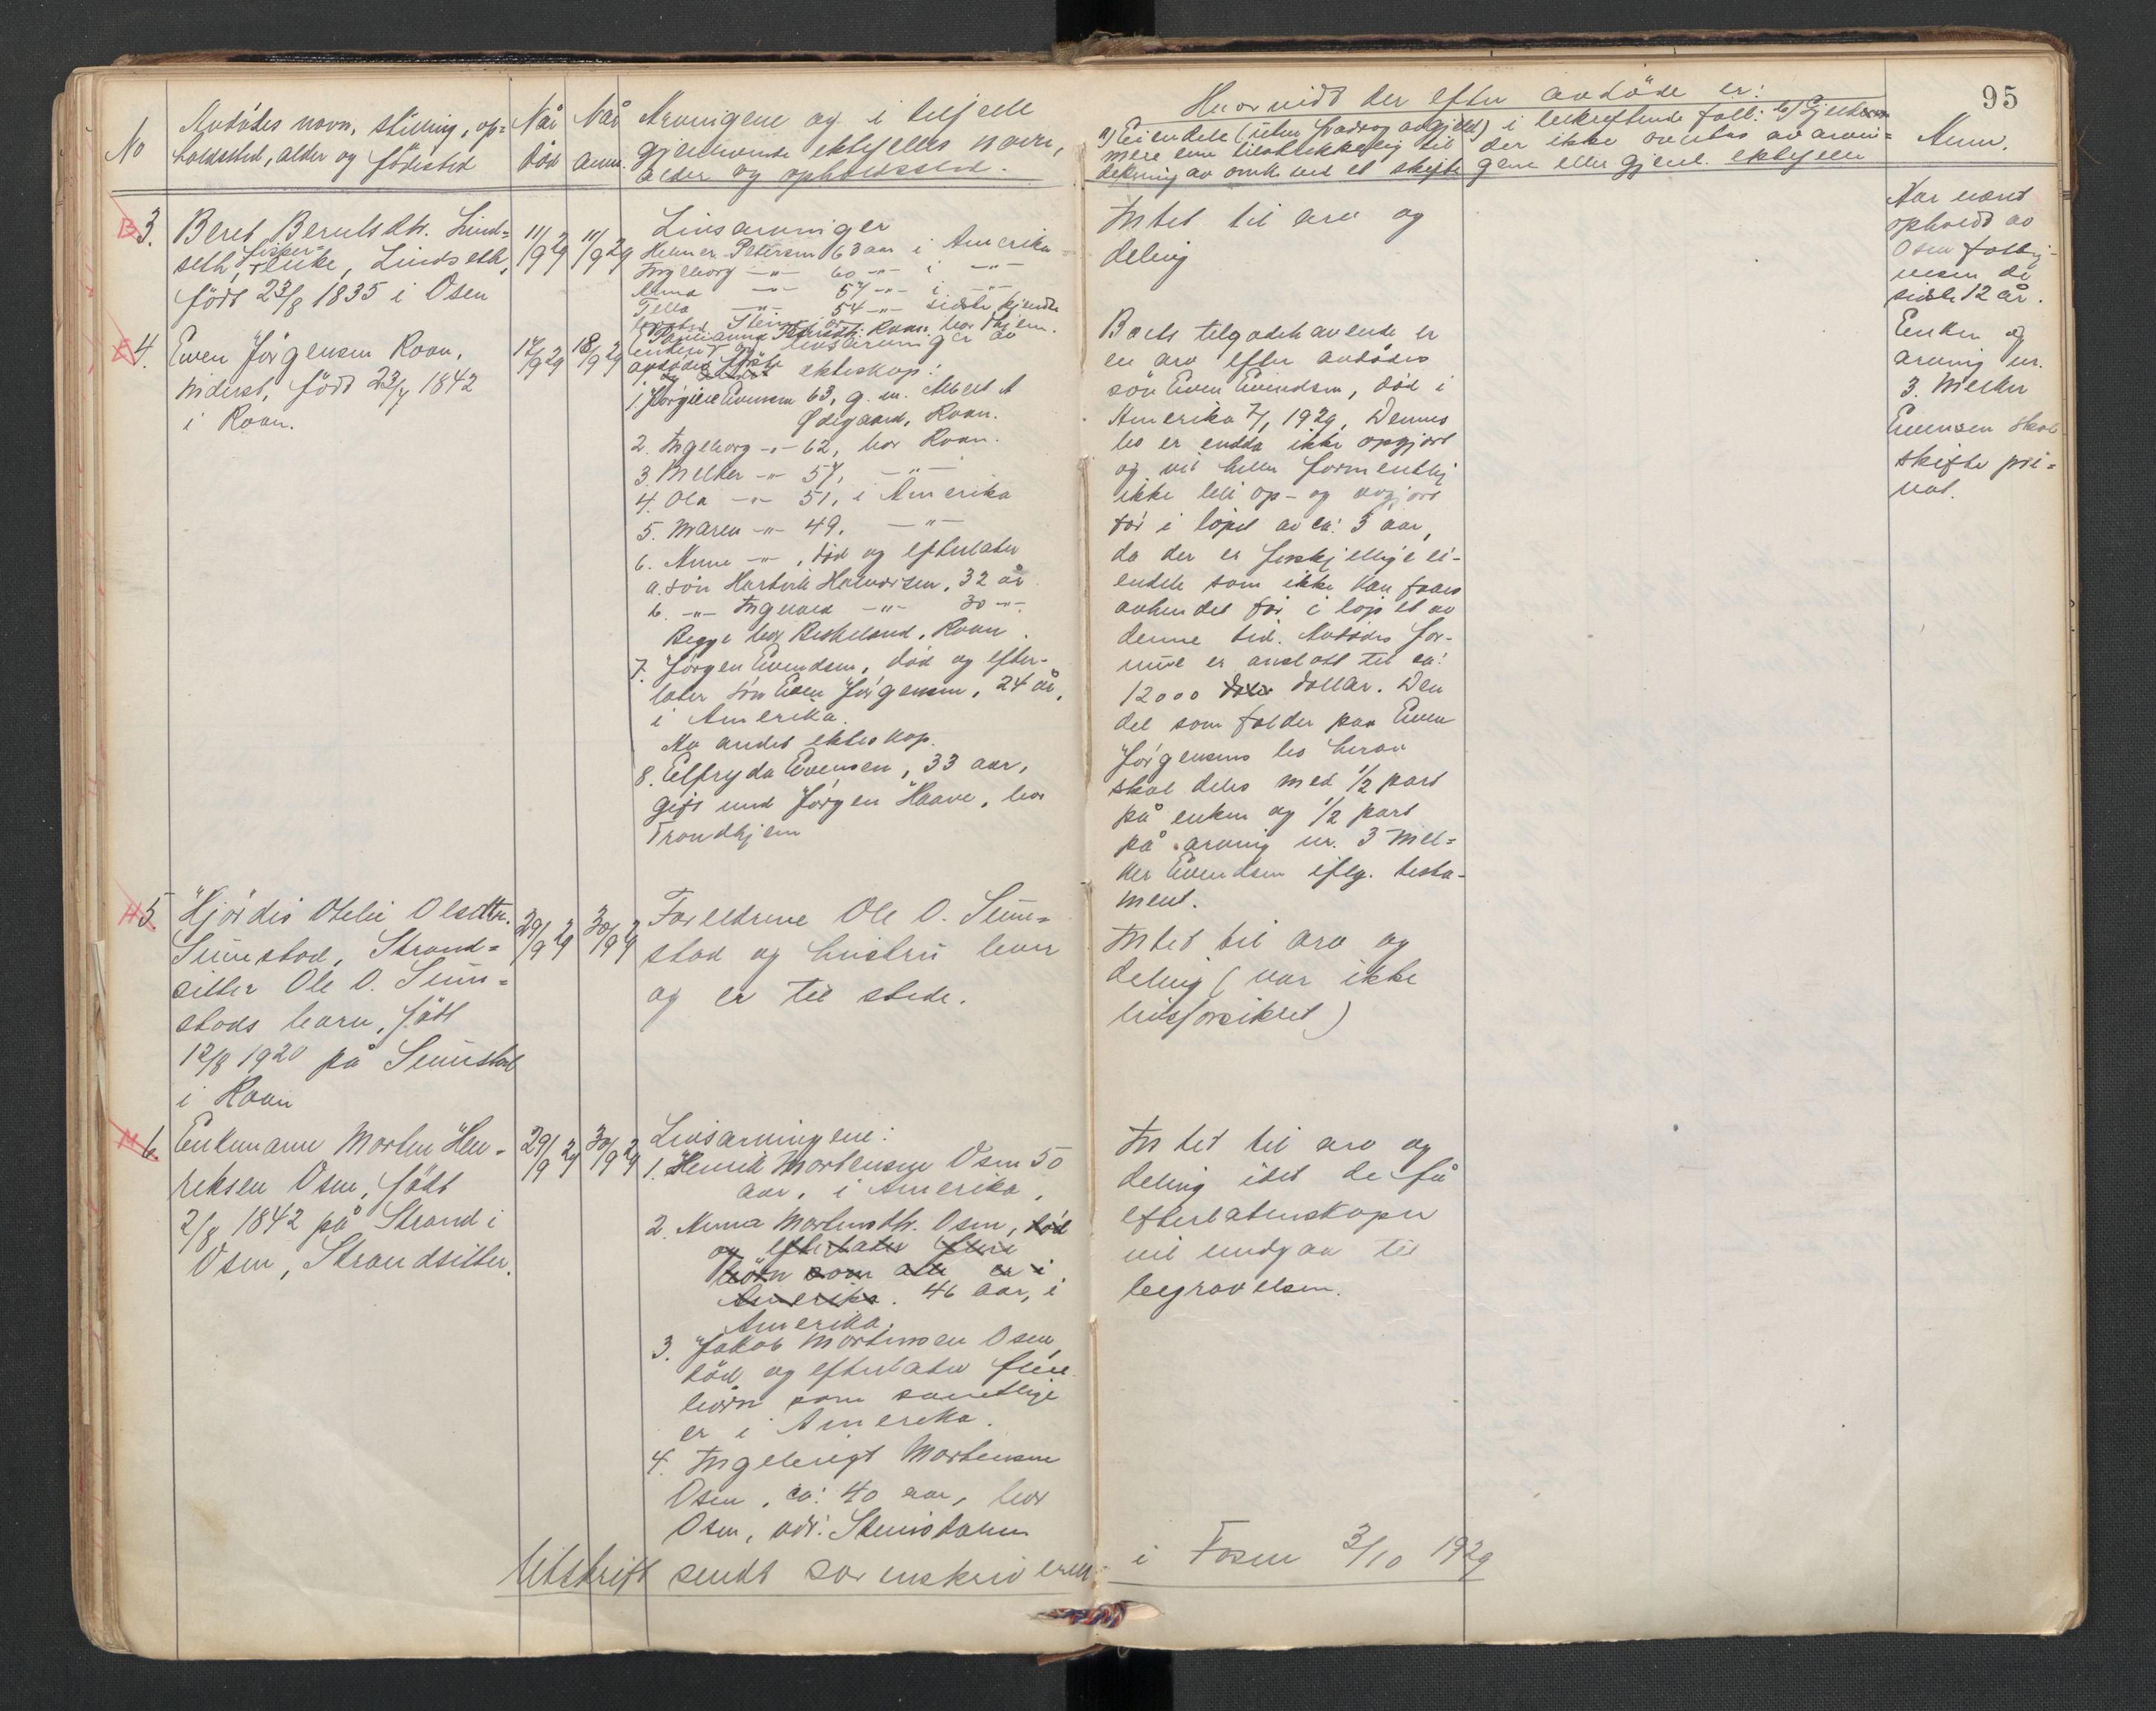 95
No
Avdödes navn, stilling, op=
holdssted, alder og födested
Når
död
Når
anm.
Arvingene og i tilfelle
gjenlevende ektefelles navn,
alder og opholdssted.
Hvorvidt der efter avdöde er:
a) Eiendele (uten fradrag av gjeld)
mere enn tilstrekkelig til
dekning av omk. ved et skifte
i bekreftende fall: b) Gjeld som
der ikke overtas av arvin=
gene eller gjenl. ektefelle
Anm.
B 3.
Beret Berntsdtr. Lind=
seth, fisker=
enke, Lindseth,
født 23/8 1835 i Osen
11/9 29
11/9 29
Livsarvinger
Helmer Petersen 63 aar i Amerika
Ingeborg -"- 60 -"- i -"-
Anna -"- 57 -"- i -"-
Tella -"- 54 -"- sidste kjendte
Intet til arv og
deling
Har været
opholdt av
Osen fattig-
vesen de
sidste 12 år.
E 4.
Even Jörgensen Roan,
inderst, född 23/7 1842
i Roan.
17/9 29
18/9 29
livsarvinger av
avdödes første ekteskap:
1. Jörgine Evensen 63, g. m. Albert A
Ödegaard, Roan.
2. Ingeborg -"- 62, bor Roan.
3. Melker -"- 57, -"-
4. Ola -"- 51, i Amerika
5. Maren -"- 49, -"-
6. Anne -"-, död og efterlater
a. sön Hartvik Halvorsen, 32 år
b. -"- Ingvald -"- 30 -"-
Begge bor Beskeland, Roan.
7. Jörgen Evendsen, död og efter-
later sön Even Jörgensen, 24 år,
i Amerika.
Av andet ekteskap.
8. Elfryda Evensen, 33 aar,
gift med Jörgen Haave, bor
Trondhjem
Boets tilgodehavende er
en arv efter avdödes
sön Even Evendsen, död i
Amerika 7/1 1929. Dennes
bo er endda ikke opgjort
og vil heller formentlig
ikke bli op- og avgjort
för i löpet av ca: 5 aar,
da der er forskjellige ei-
endele som ikke kan faaes
avhendet för i löpet av
denne tid. Avdödes for-
mue er anslått til ca:
12000 dollar. Den
del som falder paa Even
Jörgensens bo herav
skal deles med 1/2 part
på enken og 1/2 part
på arving nr. 3 Mel=
ker Evendsen iflg. testa-
ment.
Enken og
arving nr.
3. Melker
Evensen skal
skifte pri=
vat.
H 5.
Hjördis Otelie Olsdtr.
Sumstad, Strand=
sitter Ole O. Sum=
stads barn, født
12/8 1920 på Sumstad
i Roan
29/9 29
30/9 29
Forældrene Ole O. Sum=
stad og hustru lever
og er til stede.
Intet til arv og
deling (var ikke
livsforsikret)
M 6.
Enkemann Morten Hen-
reksen Osen, født
2/8 1842 på Strand i
Osen, Strandsitter.
29/9 29
30/9 29
Livsarvingene:
1. Henrik Mortensen Osen 50
aar, i Amerika,
2. Anna Mortensdtr. Osen, död
og efterlater flere
börn som alle er i
Amerika. 46 aar, i
Amerika.
3. Jakob Mortensen Osen,
död og efterlater flere
börn som samtlige
er i Amerika.
4. Ingebrigt Mortensen
Osen, ca: 40 aar, bor
Osen, adr: Steinsdalen
Intet til arv og
deling idet de få
efterlatenskaper
vil medgaa til
begravelsen.
Utskrift sendt sorenskriveren i Fosen 3/10 1929